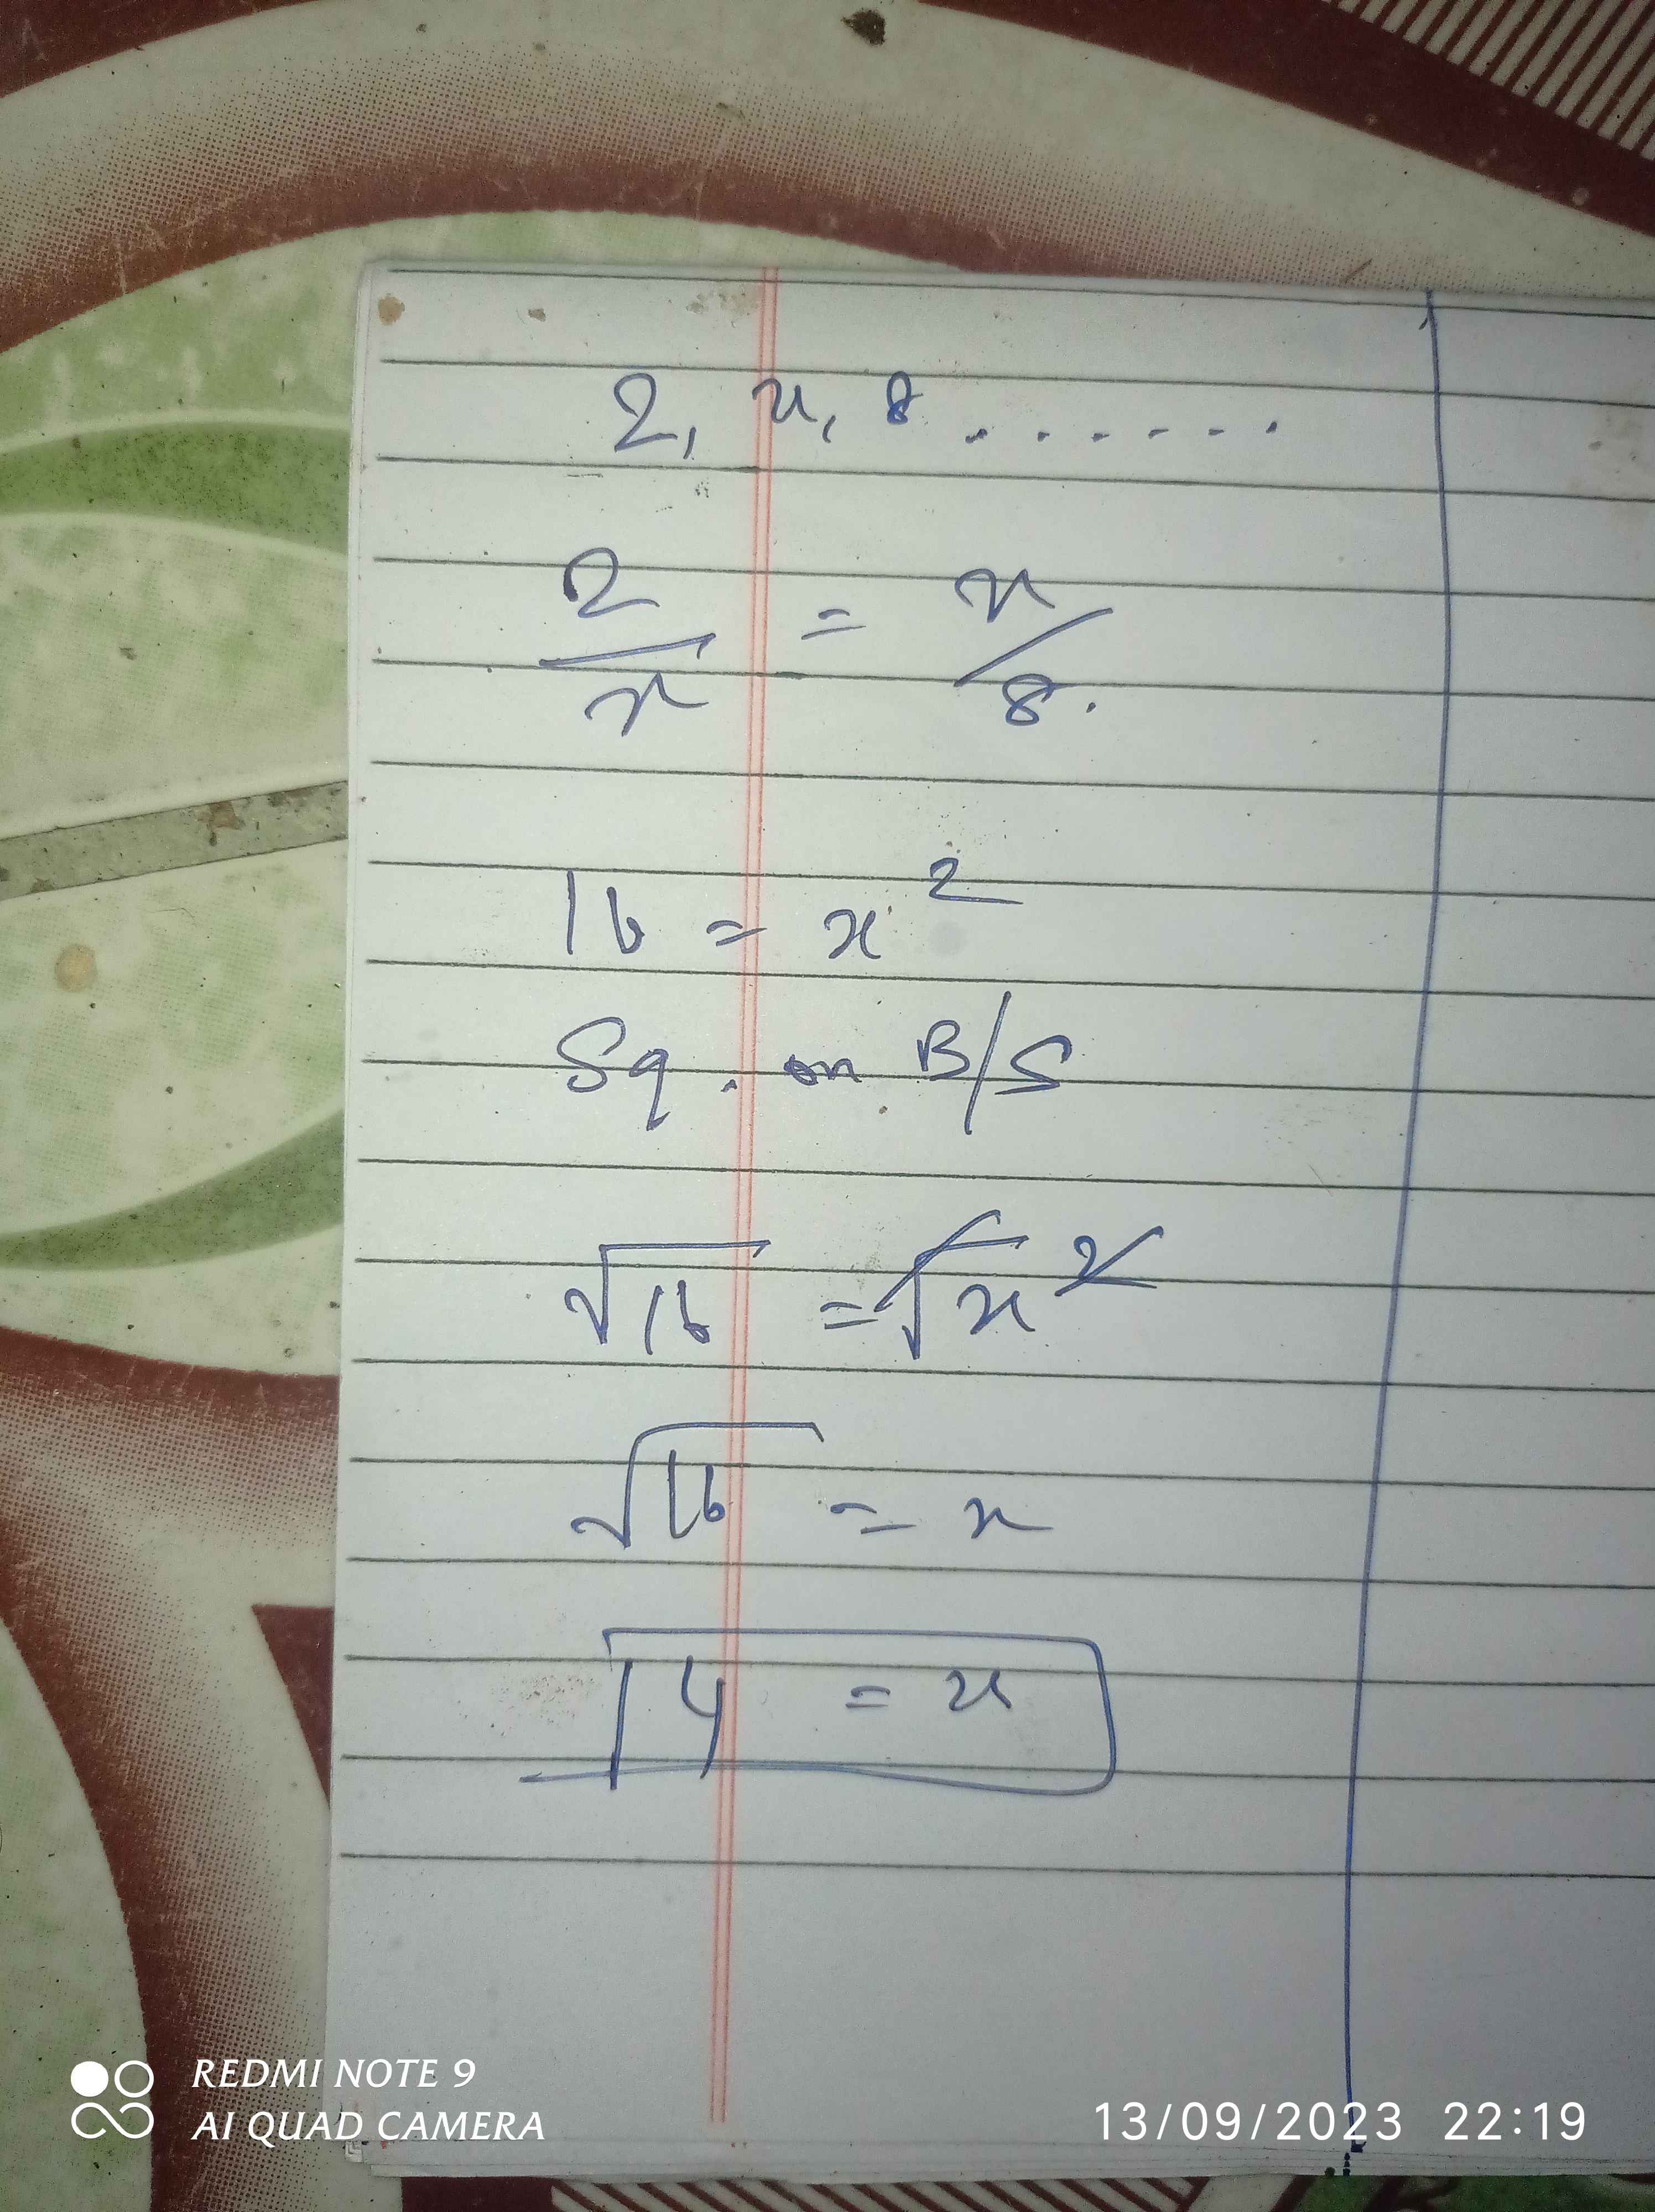 2, x, 8 .......
2/x = x/8.
16 = x²
Sq. on B/S
√16 = √x²
√16 = x
4 = x
REDMI NOTE 9
AI QUAD CAMERA
13/09/2023 22:19